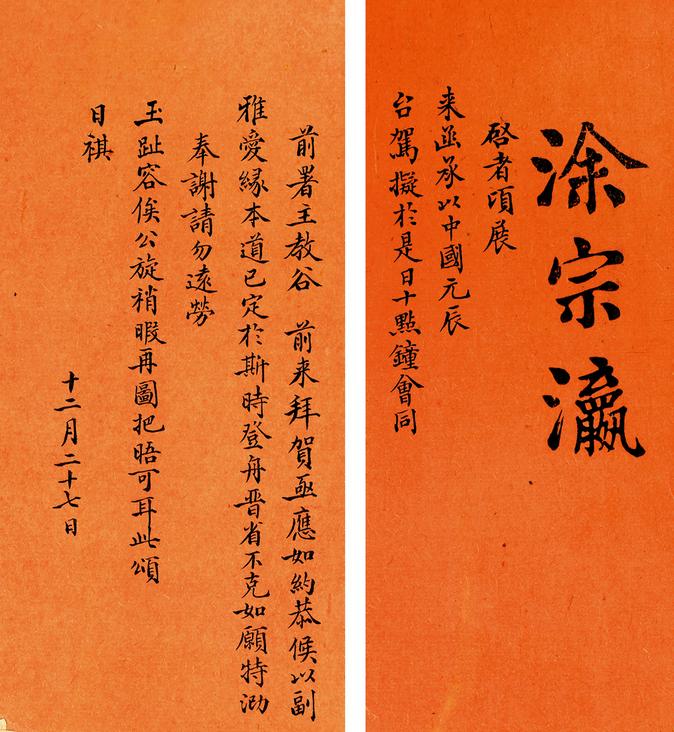 涂宗瀛
啓者頃展
来函承以中國元辰
台駕擬於是日十點鐘會同
前署主教谷 前来拜賀亟應如約恭候以副
雅愛緣本道已定於斯時登舟晋省不克如願特泐
奉謝請勿遠勞
玉趾容俟公旋稍暇再圖把晤可耳此頌
日祺
十二月二十七日